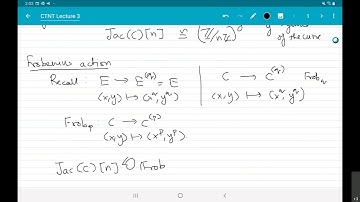 2:02
CTNT Lecture 3
Jac(C)[n] ≅ (ℤ/nℤ)^2g g genus of the curve
Frobenius action
Recall: E → E^(q) = E
(x,y) ↦ (x^q, y^q)
C → C^(q) Frob_q
(x,y) ↦ (x^q, y^q)
Frob_p: C → C^(p)
(x,y) ↦ (x^p, y^p)
Jac(C)[n] ↺ Frob